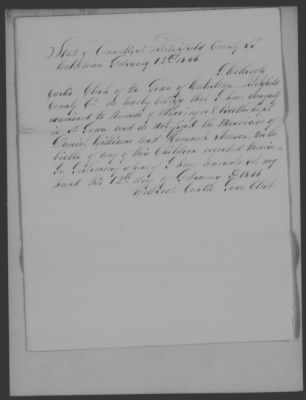 State of Connecticut Litchfield County SS
February 12th 1846
I
Curtis Clerk of the Town of Litchfield
County Ct do hereby certify that I have
examined the Records of Marriages & Births kept
in sd Town and do not find the Marriage of
Daniel Williams and Hannah
births of any of their Children recorded therein
In Testimony whereof I have hereunto set my
hand this 12th day of February AD 1846
Curtis Town Clerk